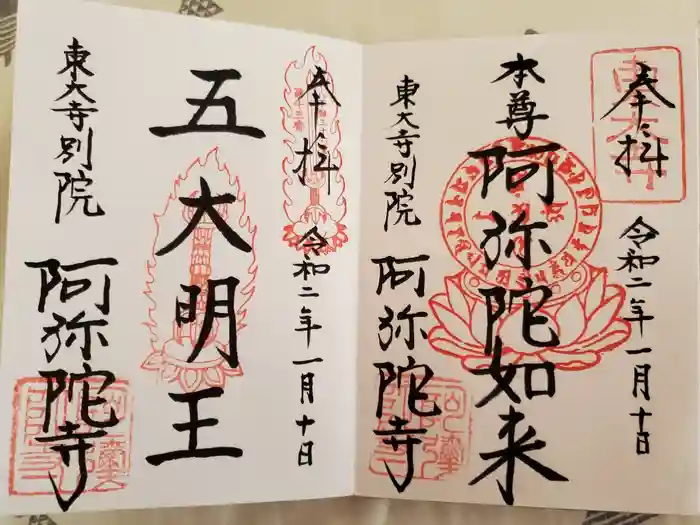 奉拝
令和二年一月十日
本尊
阿弥陀如来
東大寺別院
阿弥陀寺
奉拝
令和二年一月十日
五大明王
東大寺別院
阿弥陀寺